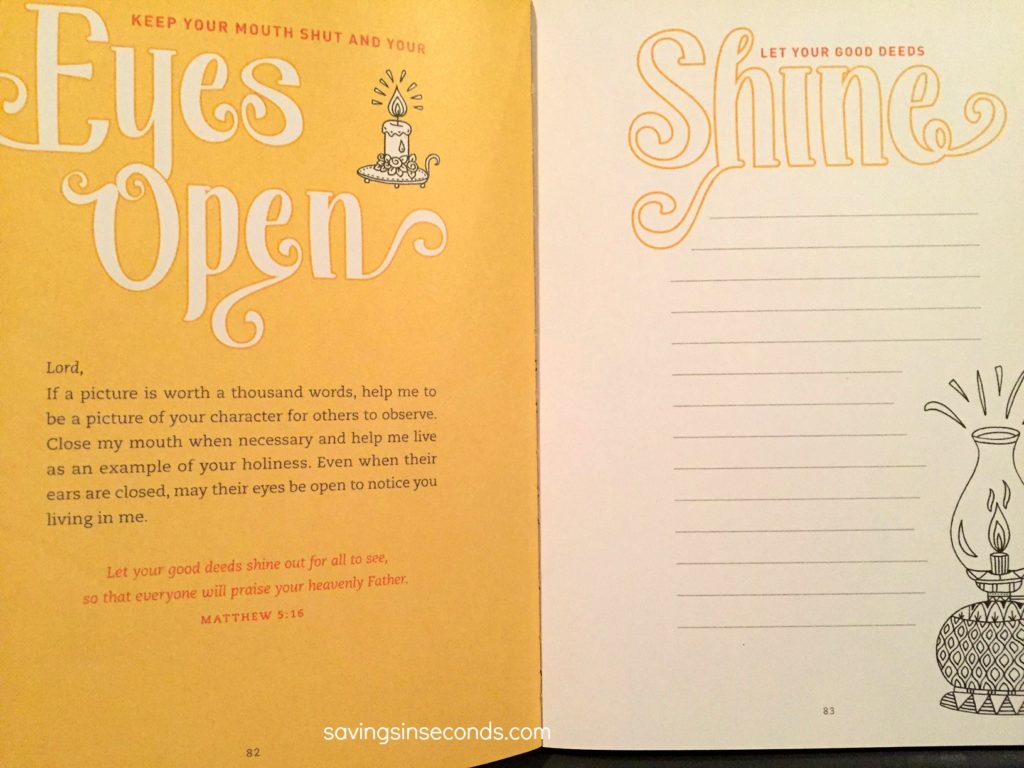 KEEP YOUR MOUTH SHUT AND YOUR
Eyes
Open
Lord,
If a picture is worth a thousand words, help me to
be a picture of your character for others to observe.
Close my mouth when necessary and help me live
as an example of your holiness. Even when their
ears are closed, may their eyes be open to notice you
living in me.
Let your good deeds shine out for all to see,
so that everyone will praise your heavenly Father.
MATTHEW 5:16
82
LET YOUR GOOD DEEDS
Shine
83
savingsinseconds.com